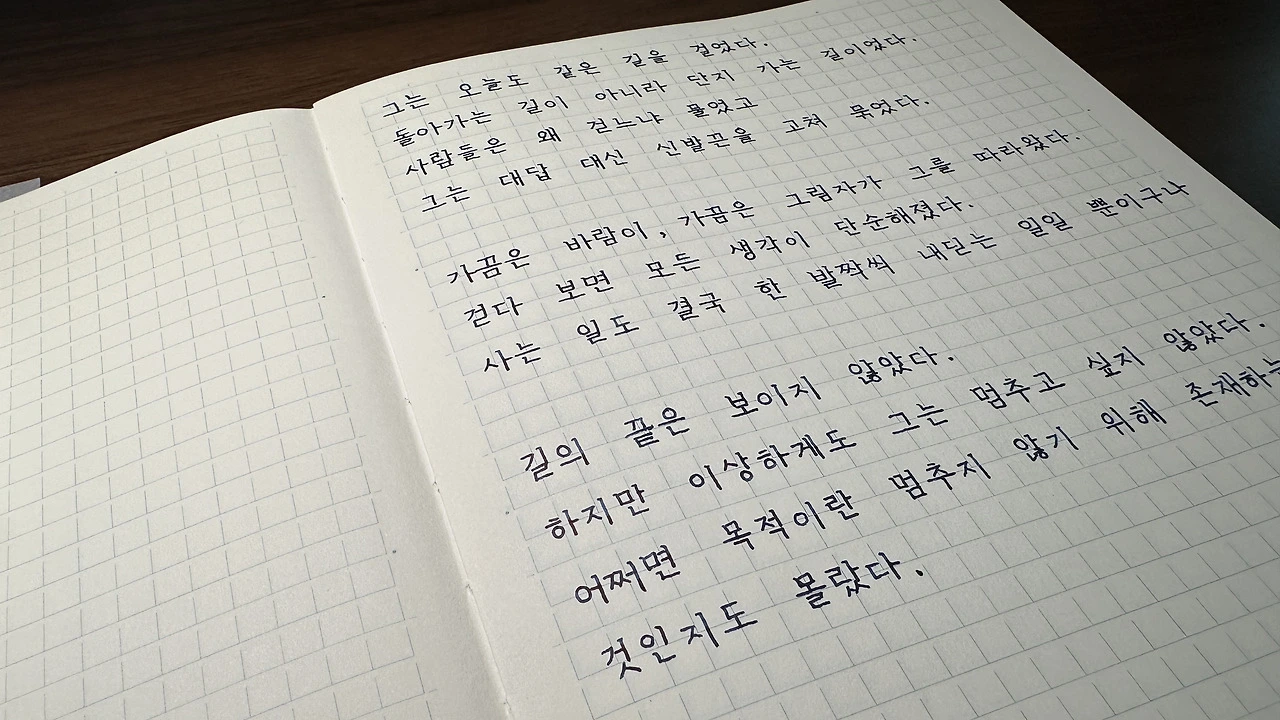 그는 오늘도 같은 길을 걸었다.
돌아가는 길이 아니라 단지 가는 길이었다.
사람들은 왜 걷느냐 물었고
그는 대답 대신 신발끈을 고쳐 묶었다.
가끔은 바람이, 가끔은 그림자가 그를 따라왔다.
걷다 보면 모든 생각이 단순해졌다.
사는 일도 결국 한 발짝씩 내딛는 일일 뿐이구나
길의 끝은 보이지 않았다.
하지만 이상하게도 그는 멈추고 싶지 않았다.
어쩌면 목적이란 멈추지 않기 위해 존재하는
것인지도 몰랐다.